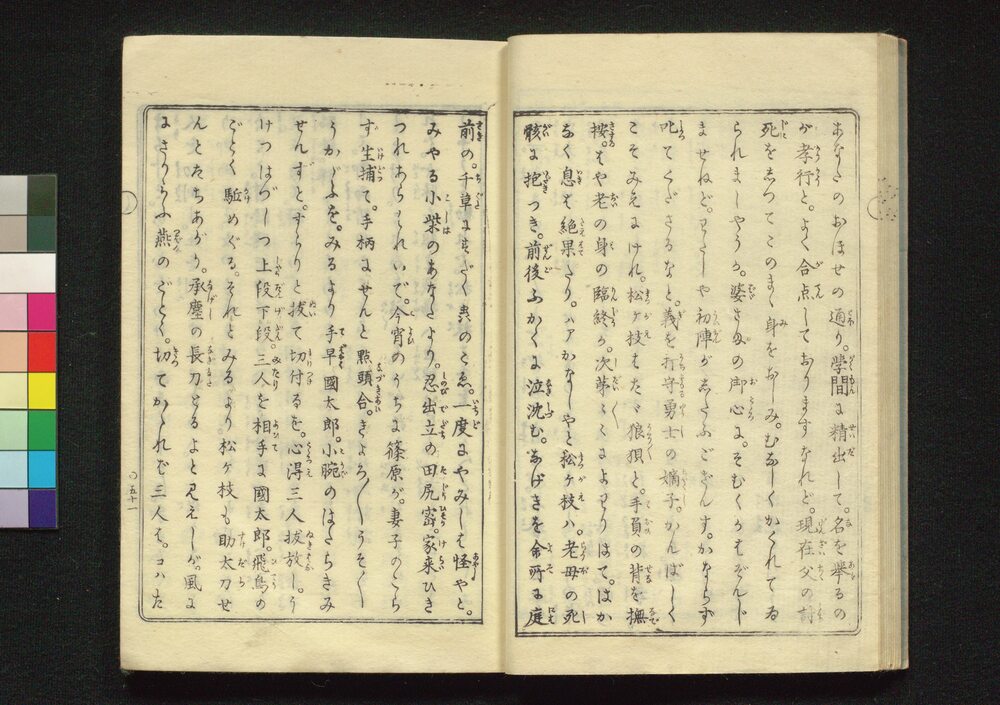 あなたのおほせの通り。學問に精出して。名を舉るの
が孝行と。よく合点しておりますなれど。現在父の討
死をしつてこのまく身をおしみ。むなしくかくれてゐ
られましやうか。婆さまの御心に。そむくかはぞんじ
ませねど。わたしや初陣がしたふござんす。かならず
叱てくださるなと。義を打守勇士の嫡子。かんばしく
こそみえにけれ。松ヶ枝はたゞ狼狽と。手負の背を撫
按。もや老の身の臨終か。次第〳〵によわりはて。はか
なく息は絶果たり。ハアかなしやと松ヶ枝ハ。老母の死
骸に抱つき。前後ふかくに泣沈む。なげきを余所に庭
前の。千草にすだく虫のこゑ。一度にやみしは怪やと。
みやる小柴のあなたより。忍出立の田尻密。家来ひき
つれあらはれいで。今宵のうちに篠原が。妻子のこら
ず生捕て。手柄にせんと點頭合。きよろ〳〵うそ〳〵
うかゞふを。みるより手早國太郎。小腕のはたちきみ
せんずと。すらりと拔て切付るを。心得三人拔放し。う
けつはづしつ上段下段。三人を相手に國太郎。飛鳥の
ごとく駈めぐる。それとみるより松ヶ枝も助太刀せ
んとたちあがり。承塵の長刀とるよと見えしが。風に
さからふ燕のごとく。切てかゝれば三人も。コハた
〇五十一